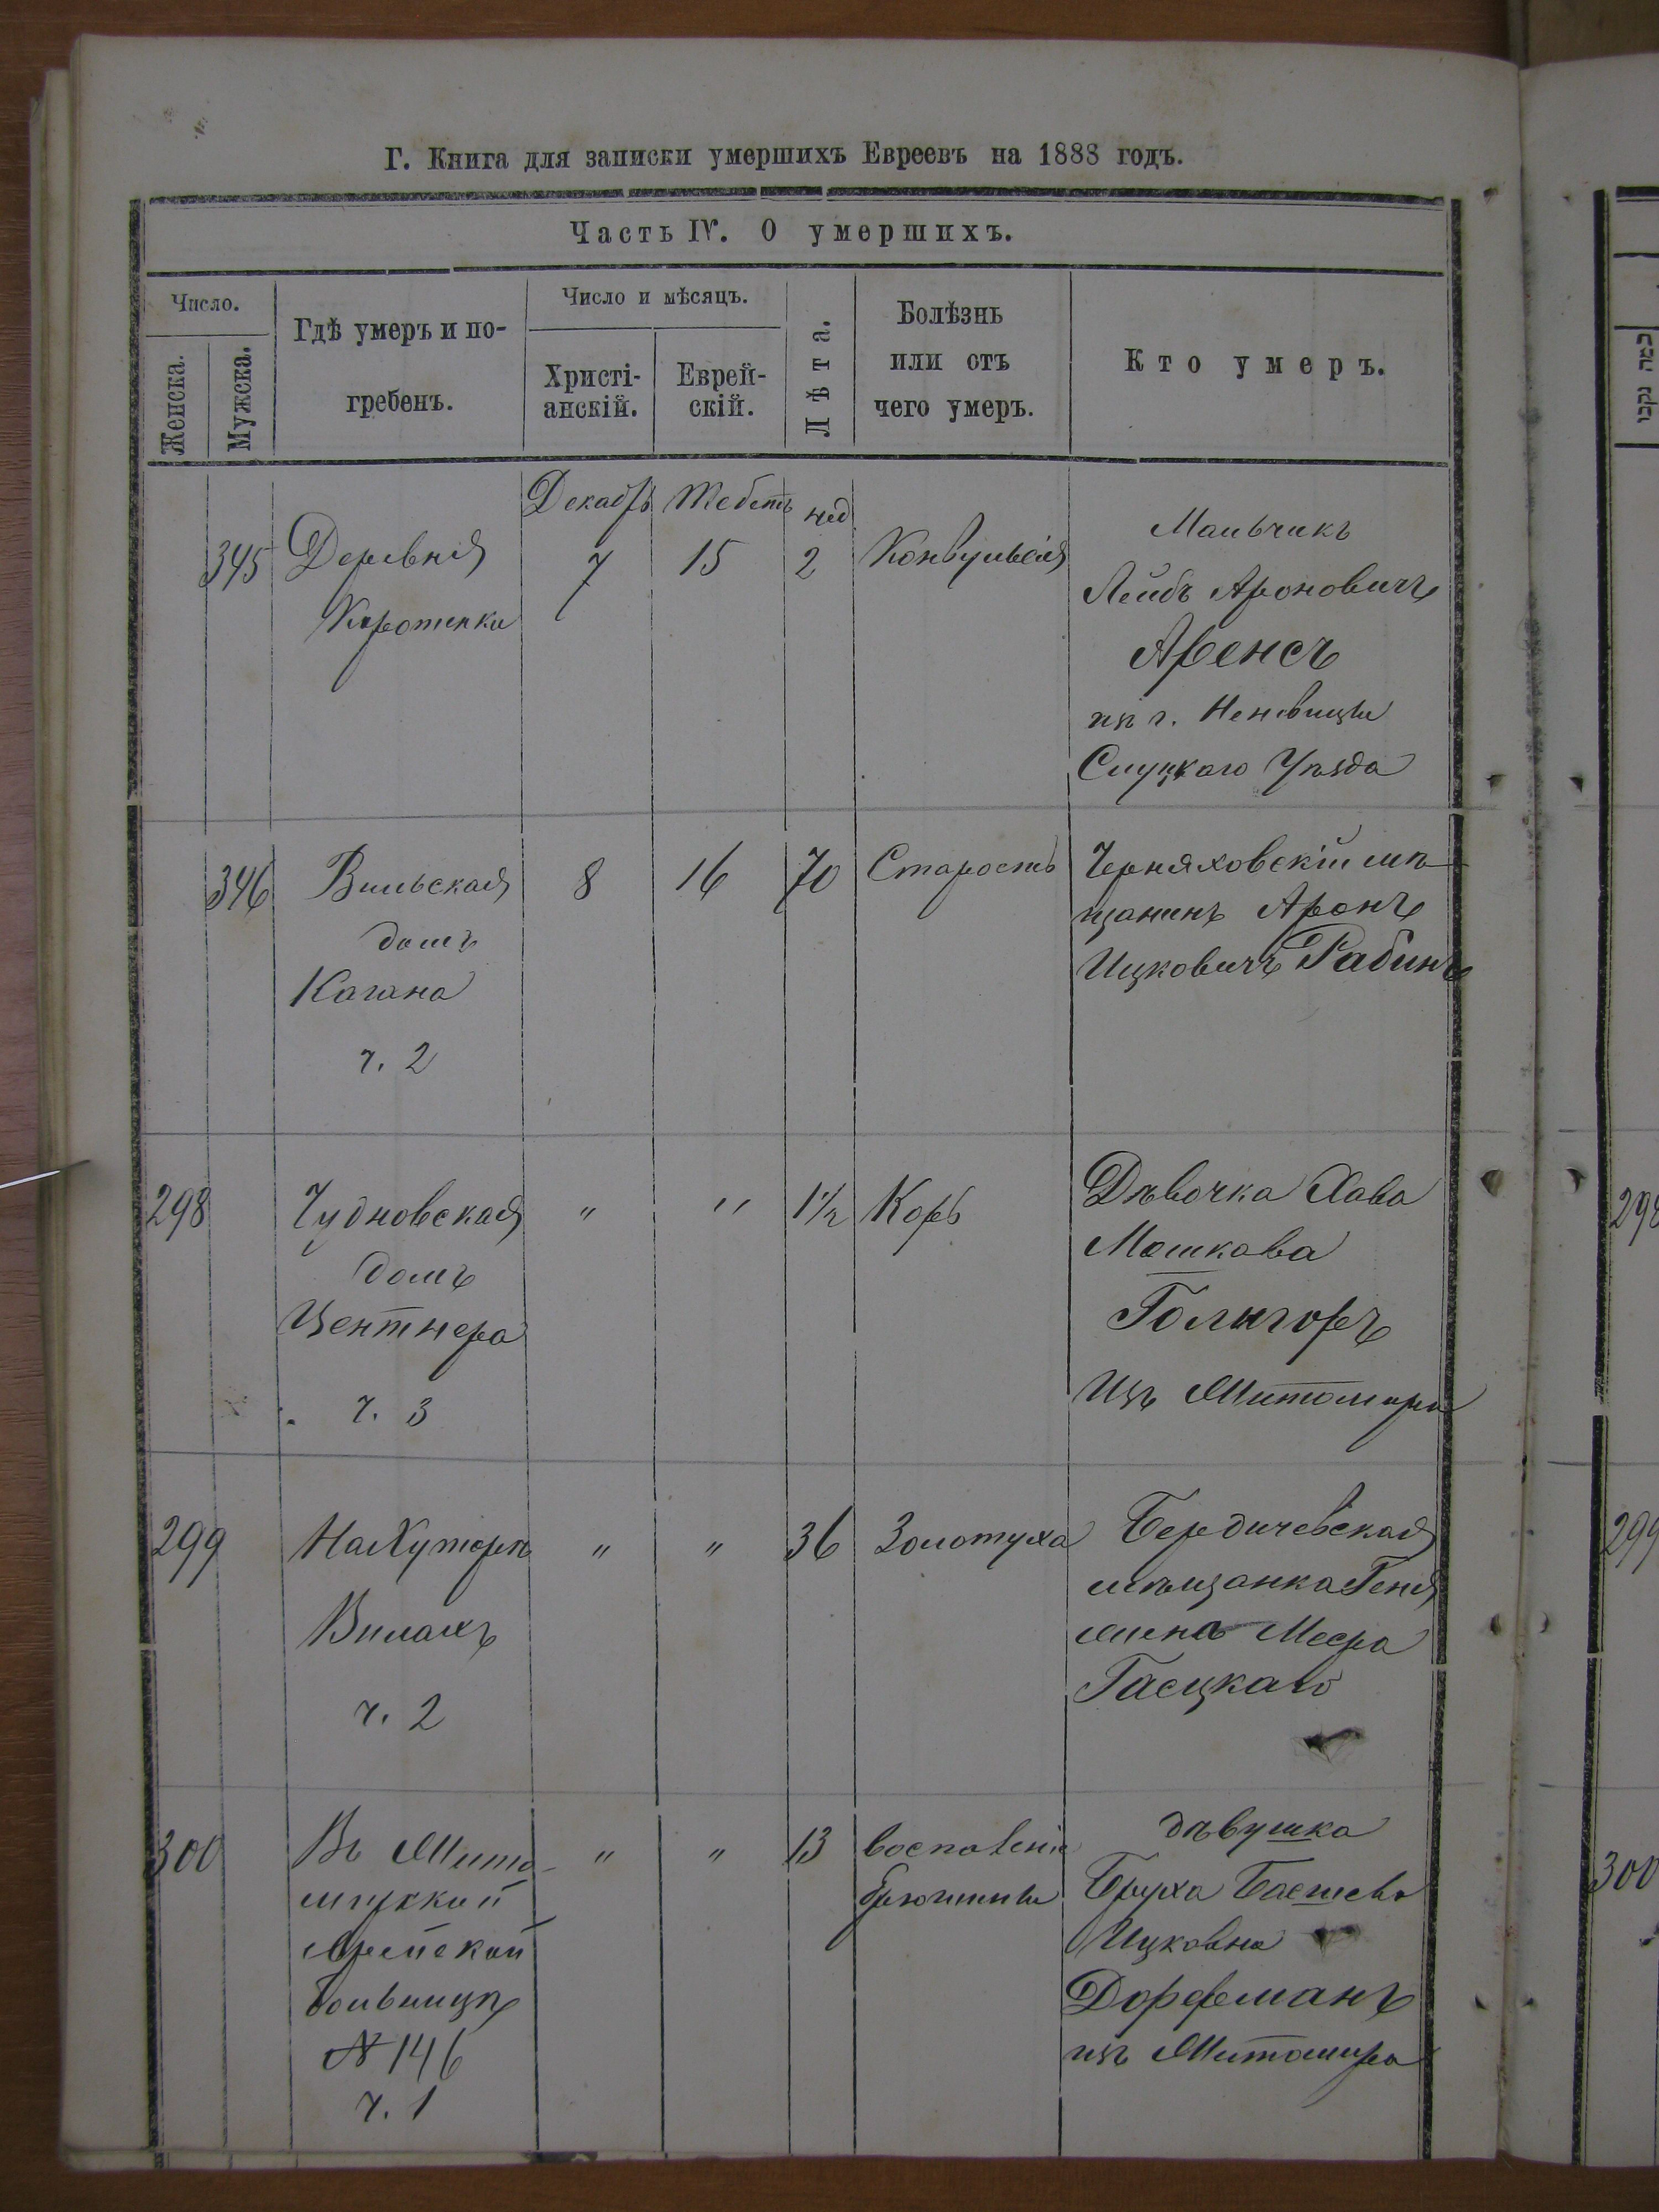 Г. Книга для записки умершихъ Евреевъ на 1888 годъ.
Часть IV. О умершихъ.
Число.
Женска.
Мужска.
Гдѣ умеръ и по-
гребенъ.
Число и мѣсяцъ.
Христі-
анскій.
Еврей-
скій.
Лѣта.
Болѣзнь
или отъ
чего умеръ.
Кто умеръ.
כמה נקבו
Декабрь Тебетъ нед
345 Деревня 7 15 2 Конвульсія Мальчикъ
Коротенки
Лейбъ Ароновичъ
Аренсъ
изъ г.
Слуцкаго Уѣзда
346 Вильская 8 16 70 Старость Черняховскій мѣ-
домъ
Кагана
ч. 2
щанинъ Аронъ
Ицковичъ Рабинъ
298 Чудновская " " 1½ Корь Дѣвочка Хава
домъ
Центнера
ч. 3
Мошкова
Гольгоръ
Изъ Житомира
298
299 На Хуторѣ " " 36 Золотуха Бердичевская
ч. 2
мѣщанка Геня
жена Меера
Гаецкаго
299
300 Въ Жито- " " 13 воспаленіе дѣвушка
мирской
еврейской
больницѣ
№ 146
ч. 1
брюшины
Бруха Басшева
Ицковна
Дорфманъ
изъ Житомира
300